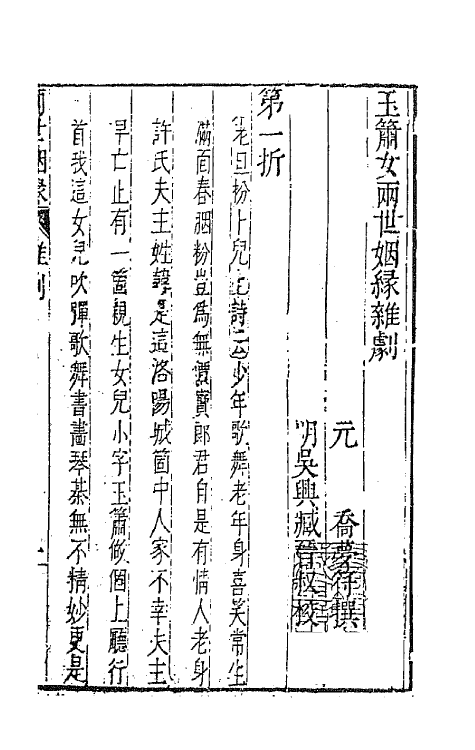 玉簫女兩世姻緣雜劇
元 喬夢符撰
明吳興臧晉叔校
第一折
老旦扮卜兒上詩云少年歌舞老年身喜笑常生
滿面春胭粉豈爲無價寶郎君自是有情人老身
許氏夫主姓韓是這洛陽城箇中人家不幸夫主
早亡止有一箇親生女兒小字玉簫做個上廳行
首我這女兒吹彈歌舞書畵琴棊無不精妙更是
兩世姻緣 雜劇 一